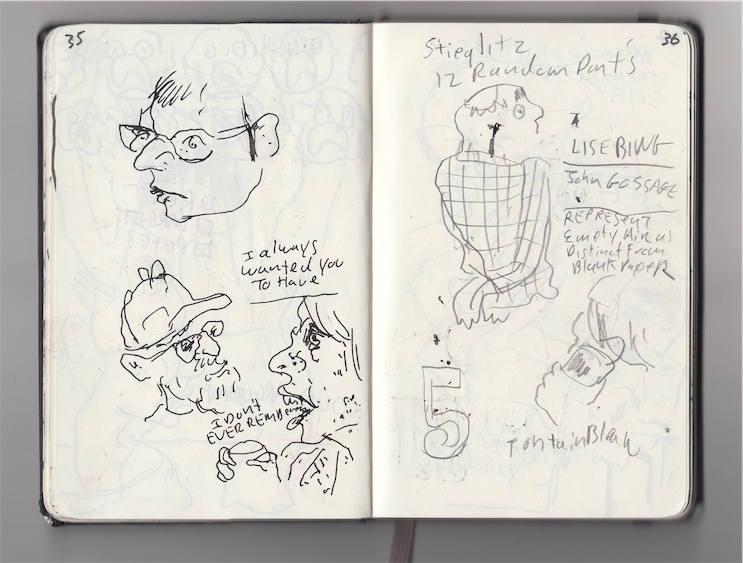 35
I always
wanted you
To Have
I DON'T
EVER REMEMBER
36
Stieglitz
12 Random Parts
LISE BING
John GOSSAGE
REPRESENT
Empty Air as
Distinct From
Blank Paper
5
FontainBleau